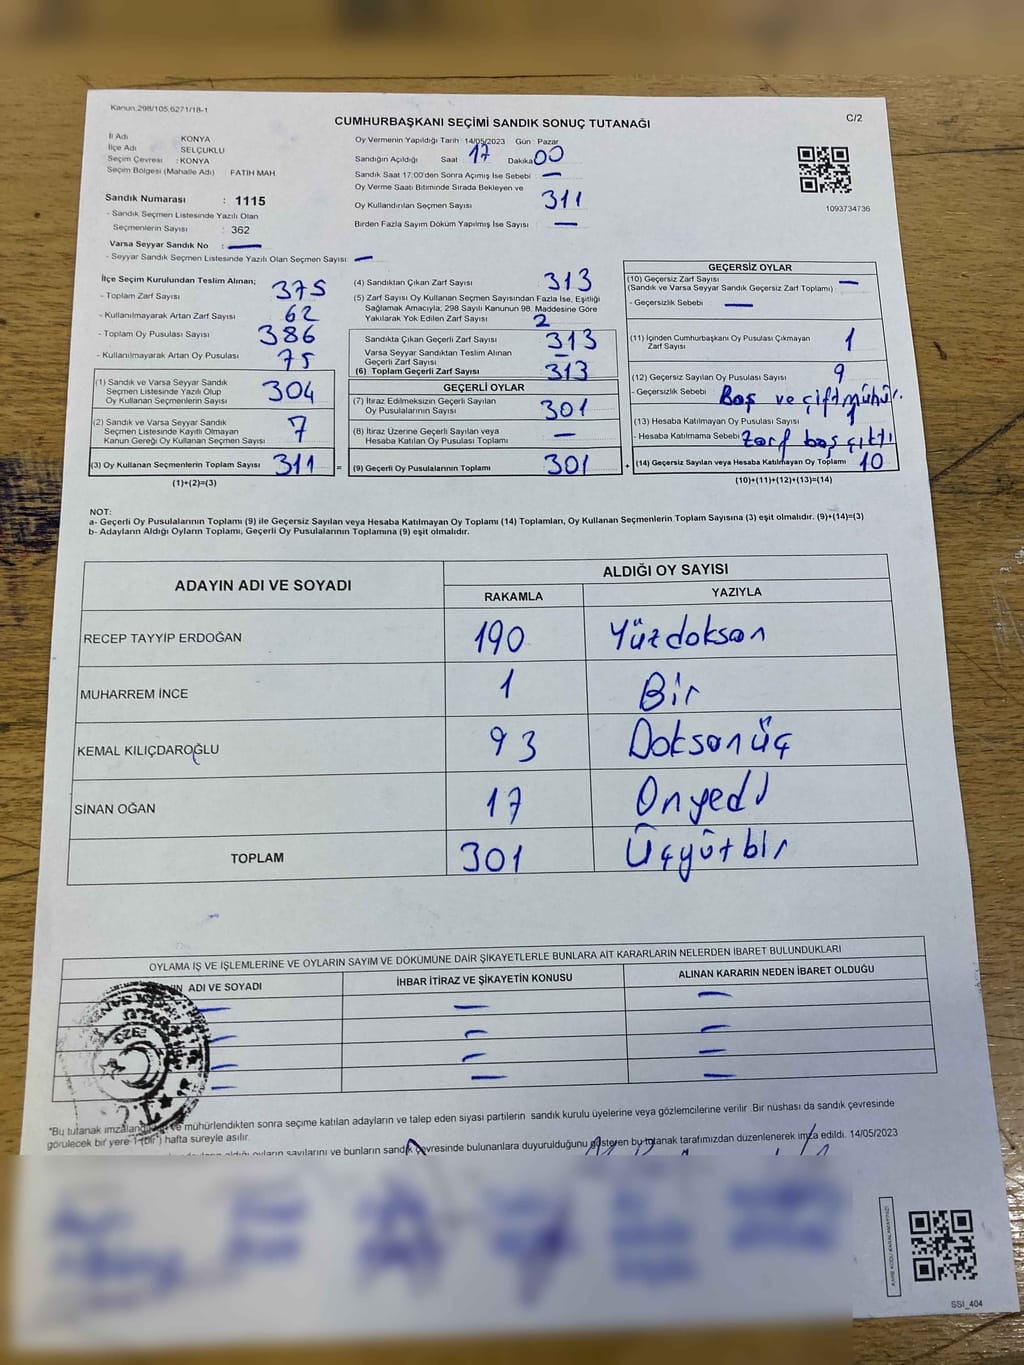 Kanun.298/105,6271/18-1
CUMHURBAŞKANI SEÇİMİ SANDIK SONUÇ TUTANAĞI
C/2
İl Adı KONYA
İlçe Adı SELÇUKLU
Seçim Çevresi : KONYA
Seçim Bölgesi (Mahalle Adı) FATİH MAH.
Sandık Numarası : 1115
- Sandık Seçmen Listesinde Yazılı Olan
Seçmenlerin Sayısı : 362
Varsa Seyyar Sandık No : —
- Seyyar Sandık Seçmen Listesinde Yazılı Olan Seçmen Sayısı: —
Oy Vermenin Yapıldığı Tarih : 14/05/2023 Gün : Pazar
Sandığın Açıldığı Saat 17 Dakika 00
Sandık Saat 17:00'den Sonra Açımış İse Sebebi : —
Oy Verme Saati Bitiminde Sırada Bekleyen ve
Oy Kullandırılan Seçmen Sayısı : 311
Birden Fazla Sayım Döküm Yapılmış İse Sayısı : —
1093734736
İlçe Seçim Kurulundan Teslim Alınan;
- Toplam Zarf Sayısı 375
- Kullanılmayarak Artan Zarf Sayısı 62
- Toplam Oy Pusulası Sayısı 386
- Kullanılmayarak Artan Oy Pusulası 75
(1) Sandık ve Varsa Seyyar Sandık
Seçmen Listesinde Yazılı Olup
Oy Kullanan Seçmenlerin Sayısı 304
(2) Sandık ve Varsa Seyyar Sandık
Seçmen Listesinde Kayıtlı Olmayan
Kanun Gereği Oy Kullanan Seçmen Sayısı 7
(3) Oy Kullanan Seçmenlerin Toplam Sayısı 311 =
(1)+(2)=(3)
(4) Sandıktan Çıkan Zarf Sayısı 313
(5) Zarf Sayısı Oy Kullanan Seçmen Sayısından Fazla İse, Eşitliği
Sağlamak Amacıyla; 298 Sayılı Kanunun 98. Maddesine Göre
Yakılarak Yok Edilen Zarf Sayısı 2
Sandıkta Çıkan Geçerli Zarf Sayısı 313
Varsa Seyyar Sandıktan Teslim Alınan
Geçerli Zarf Sayısı —
(6) Toplam Geçerli Zarf Sayısı 313
GEÇERLİ OYLAR
(7) İtiraz Edilmeksizin Geçerli Sayılan
Oy Pusulalarının Sayısı 301
(8) İtiraz Üzerine Geçerli Sayılan veya
Hesaba Katılan Oy Pusulası Toplamı —
(9) Geçerli Oy Pusulalarının Toplamı 301 +
GEÇERSİZ OYLAR
(10) Geçersiz Zarf Sayısı
(Sandık ve Varsa Seyyar Sandık Geçersiz Zarf Toplamı) —
- Geçersizlik Sebebi : —
(11) İçinden Cumhurbaşkanı Oy Pusulası Çıkmayan
Zarf Sayısı 1
(12) Geçersiz Sayılan Oy Pusulası Sayısı 9
- Geçersizlik Sebebi Boş ve çift mühür.
(13) Hesaba Katılmayan Oy Pusulası Sayısı 1
- Hesaba Katılmama Sebebi zarf boş çıktı
(14) Geçersiz Sayılan veya Hesaba Katılmayan Oy Toplamı 10
(10)+(11)+(12)+(13)=(14)
NOT:
a- Geçerli Oy Pusulalarının Toplamı (9) ile Geçersiz Sayılan veya Hesaba Katılmayan Oy Toplamı (14) Toplamları, Oy Kullanan Seçmenlerin Toplam Sayısına (3) eşit olmalıdır. (9)+(14)=(3)
b- Adayların Aldığı Oyların Toplamı, Geçerli Oy Pusulalarının Toplamına (9) eşit olmalıdır.
ADAYIN ADI VE SOYADI ALDIĞI OY SAYISI
RAKAMLA YAZIYLA
RECEP TAYYİP ERDOĞAN 190 Yüzdoksan
MUHARREM İNCE 1 Bir
KEMAL KILIÇDAROĞLU 93 Doksanüç
SİNAN OĞAN 17 Onyedi
TOPLAM 301 Üçyüzbir
OYLAMA İŞ VE İŞLEMLERİNE VE OYLARIN SAYIM VE DÖKÜMÜNE DAİR ŞİKAYETLERLE BUNLARA AİT KARARLARIN NELERDEN İBARET BULUNDUKLARI
ADI VE SOYADI İHBAR İTİRAZ VE ŞİKAYETİN KONUSU ALINAN KARARIN NEDEN İBARET OLDUĞU
— — —
— — —
— — —
— — —
T.C.
*Bu tutanak ve mühürlendikten sonra seçime katılan adayların ve talep eden siyasi partilerin sandık kurulu üyelerine veya gözlemcilerine verilir. Bir nushası da sandık çevresinde
görülecek bir yere 1 (bir) hafta süreyle asılır.
aldığı oyların sayılarını ve bunların sandık çevresinde bulunanlara duyurulduğunu gösteren bu tutanak tarafımızdan düzenlenerek imza edildi. 14/05/2023
SSI_404